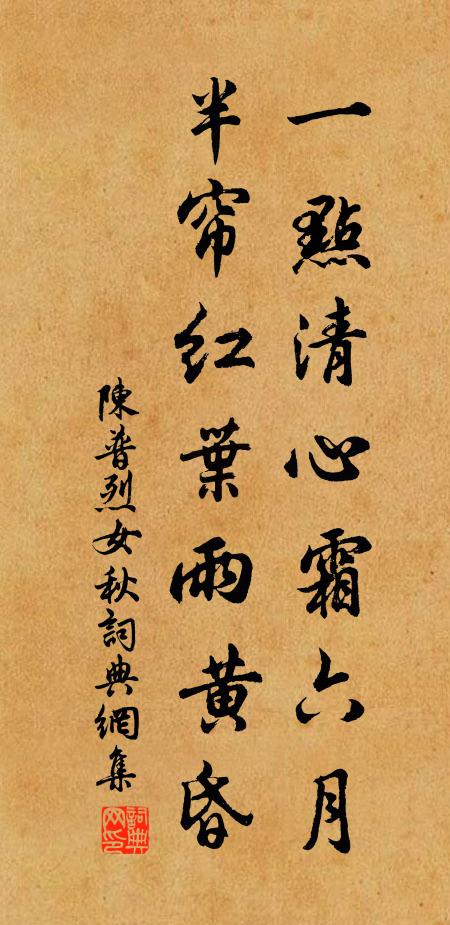 一點清心霜六月
半帘红葉雨黄昏
陳普烈女秋詞典網集
詞典网印